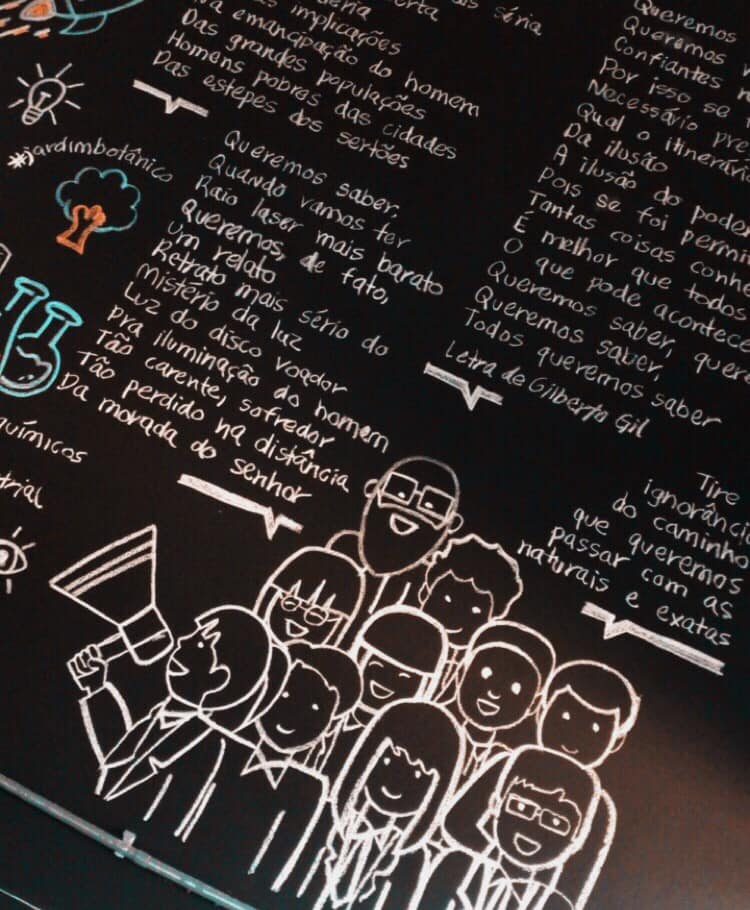 séria
implicações
emancipação do homem
Das grandes populações
Homens pobres das cidades
Das estepes dos sertões
#jardimbotânico
Queremos saber,
Quando vamos ter
Raio laser mais barato
Queremos, de fato,
Um relato
Retrato mais sério do
Mistério da luz
Luz do disco voador
Pra iluminação do homem
Tão carente, sofredor
Tão perdido na distância
Da morada do senhor
Queremos
Queremos
Confiantes
Por isso se
Necessário
Qual o
Da ilusão
A ilusão do poder
Pois se foi
Tantas coisas
É melhor que todos
O que pode
Queremos saber,
Queremos saber,
Todos queremos saber
Letra de Gilberto Gil
químicos
Tire
do caminho
que queremos
passar com as
naturais e exatas